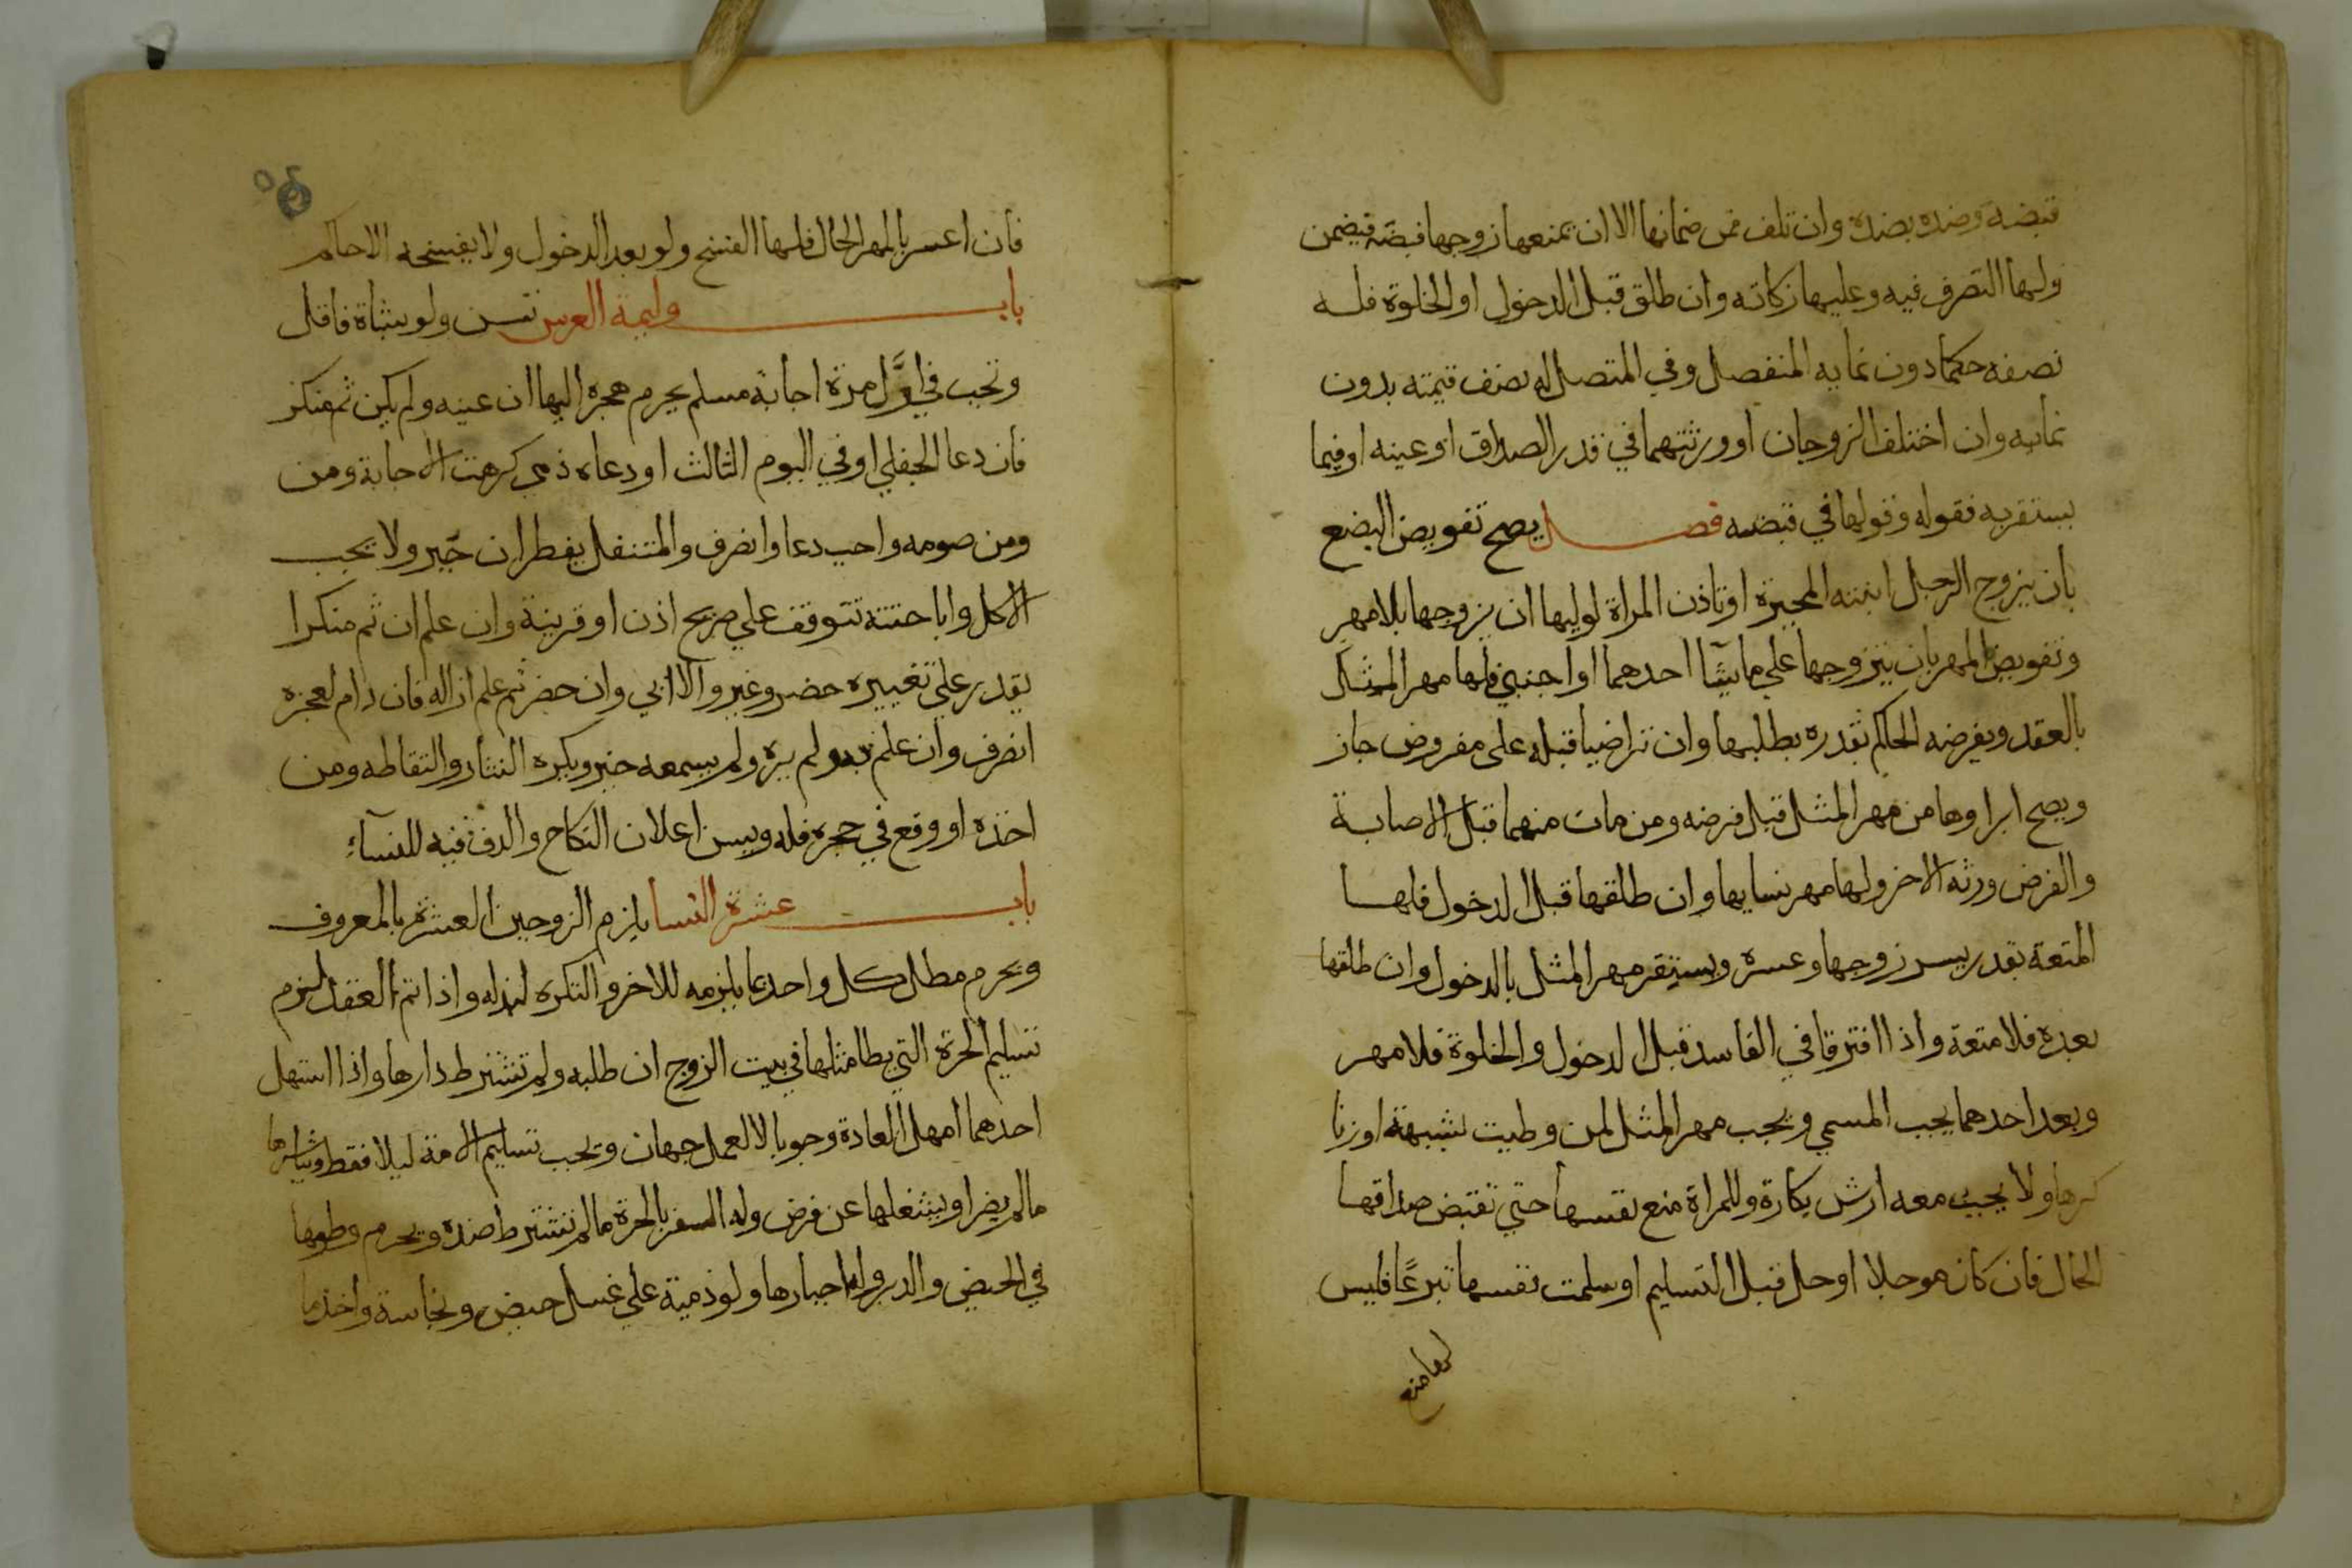 قبضه وضده بضده وان تلف فمن ضمانها الا ان يمنعها زوجها قبضه فيضمن
ولها التصرف فيه وعليها زكاته وان طلق قبل الدخول او الخلوة فله
نصفه حكما دون نمايه المنفصل وفي المتصل له نصف قيمته بدون
نمايه وان اختلف الزوجان او ورثتهما في قدر الصداق او عينه او فيما
يستقر به فقوله وقولها في قبضه فصل يصح تفويض البضع
بان يزوج الرجل ابنته المجبرة او تاذن المراة لوليها ان يزوجها بلا مهر
وتفويض المهر بان يتزوجها علي ما يشآ احدهما او اجنبي فلها مهر المثل
بالعقد ويفرضه الحاكم بقدره بطلبها وان تراضيا قبله على مفروض جاز
ويصح ابراوها من مهر المثل قبل فرضه ومن مات منهما قبل الاصابة
والفرض ورثه الاخر ولها مهر نسايها وان طلقها قبل الدخول فلها
المتعة بقدر يسر زوجها وعسره ويستقر مهر المثل بالدخول وان طلقها
بعده فلا متعة واذا افترقا في الفاسد قبل الدخول والخلوة فلا مهر
وبعد احدهما يجب المسمي ويجب مهر المثل لمن وطيت بشبهة او زنا
كرها ولا يجب معه ارش بكارة وللمراة منع نفسها حتي تقبض صداقها
الحال فان كان موجلا او حل قبل التسليم او سلمت نفسها تبرعًا فليس
لها منع
٥٤
فان اعسر بالمهر الحال فلها الفسخ ولو بعد الدخول ولا يفسخه الا حاكم
باب وليمة العرس تسن ولو بشاة فاقل
وتجب في اوَّل مرة اجابة مسلم يحرم هجره اليها ان عينه ولم يكن ثم منكر
فان دعا الجفلي او في اليوم الثالث او دعاه ذمي كرهت الاجابة ومن
ومن صومه واجب دعا وانصرف والمتنفل يفطر ان جبر ولا يجب
الاكل واباحته تتوقف علي صريح اذن او قرينة وان علم ان ثم منكرا
يقدر علي تغييره حضر وغير والا ابي وان حضر ثم علم ازاله فان دام لعجزه
انصرف وان علم به ولم يره ولم يسمعه خير ويكره النثار والتقاطه ومن
اخذه او وقع في حجره فله ويسن اعلان النكاح والدف فيه للنسآء
باب عشرة النسا يلزم الزوجين العشرة بالمعروف
ويحرم مطل كل واحد بما يلزمه للاخر والتكره لبذله واذا تم العقد لزم
تسليم الحرة التي يطا مثلها في بيت الزوج ان طلبه ولم تشترط دارها واذا استمهل
احدهما امهل العادة وجوبا لا لعمل جهاز ويجب تسليم الامة ليلا فقط ويباشرها
ما لم يضر او يشغلها عن فرض وله السفر بالحرة ما لم تشترط ضده ويحرم وطوها
في الحيض والدبر وله اجبارها ولو ذمية علي غسل حيض ونجاسة واخذ ما